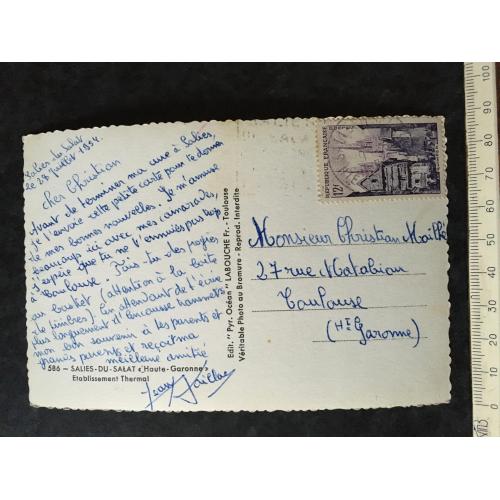 Salies du Salat
le 28 juillet 1954.
Cher Christian
Avant de terminer ma cure à Salies,
je t'envoie cette petite carte pour te donner
de mes bonnes nouvelles. Je m'amuse
beaucoup ici avec mes camarades,
j'espère que tu ne t'ennuies pas trop
à Toulouse. Fais-tu des progrès
au basket (attention à la boîte
de timbres). En attendant de t'écrire
plus longuement d'Encausse transmets
mon bon souvenir à tes parents et
grands parents et reçois ma
meilleure amitié
Jean
586 – SALIES-DU-SALAT (Haute-Garonne)
Etablissement Thermal
Edit. "Pyr. Océan" LABOUCHE Fr. - Toulouse
Véritable Photo au Bromure - Reprod. Interdite
REPUBLIQUE FRANÇAISE
12F
Monsieur Christian Mailhe
27 rue Matabiau
Toulouse
(Hte Garonne)
0
10
20
30
40
50
60
70
80
90
100